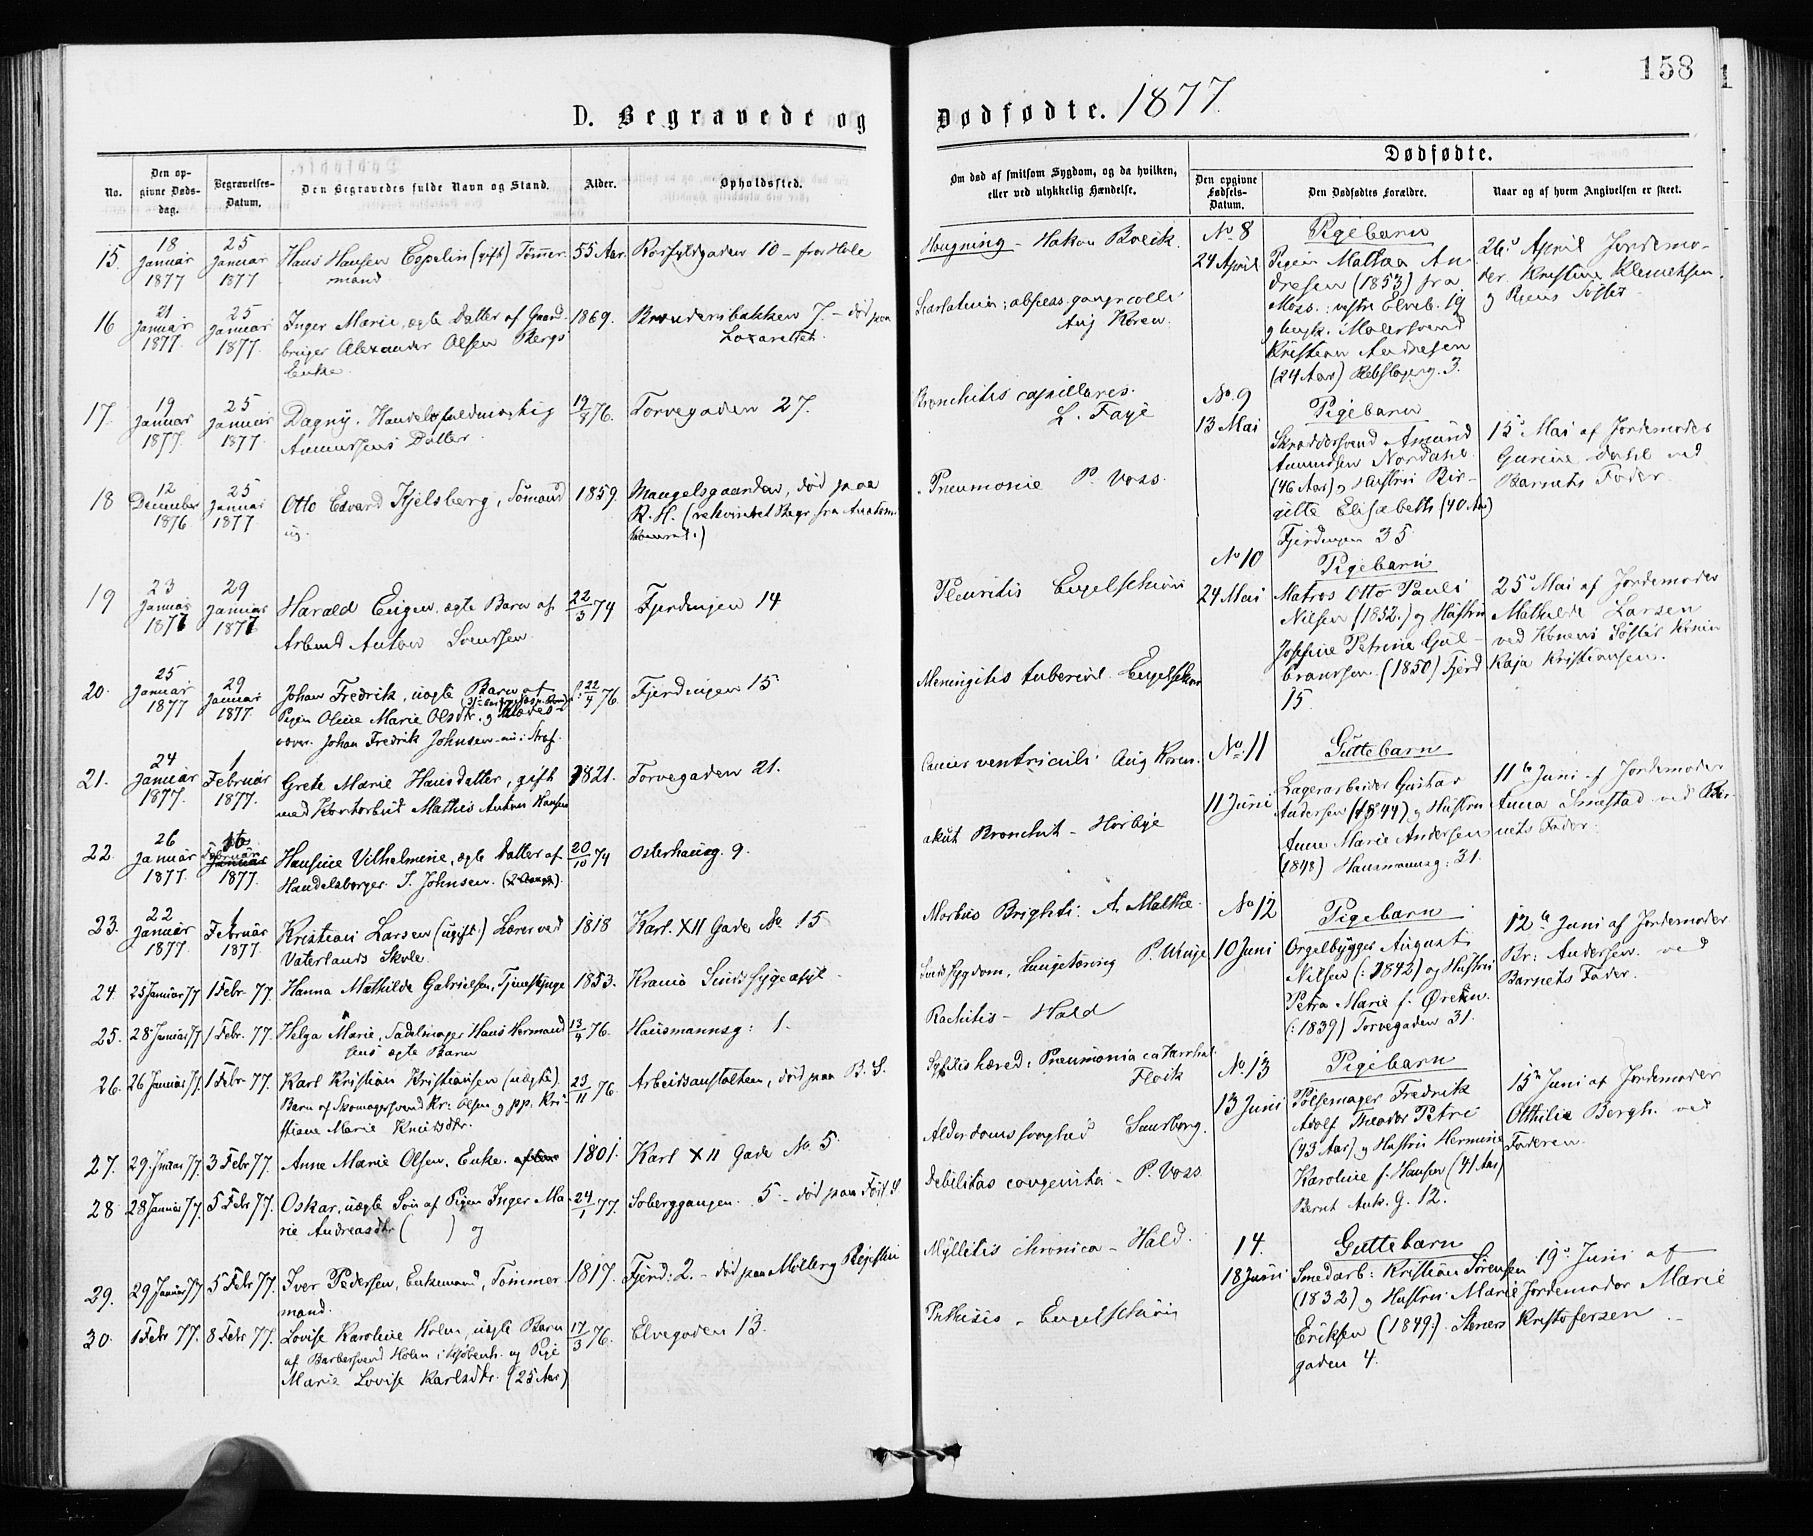 158
D. Begravede og
Dødfødte. 1877.
No.
Den opgivne Dødsdag.
Begravelses-Datum.
Den Begravedes fulde Navn og Stand.
Alder.
Opholdssted.
Om død af smitsom Sygdom, og da hvilken,
eller ved ulykkelig Hændelse.
Dødfødte.
Den opgivne Fødsels-Datum.
Den Dødfødtes Forældre.
Naar og af hvem Angivelsen er skeet.
15. 18 Januar 1877 25 Januar 1877 Hans Hansen Espelin (gift) Tømmermand 55 Aar.
16 21 Januar 1877. 25 Januar 1877. Inger Marie, ægte Datter af Gaardbruger Alexander Olsen Bergs Enke. 1869. 7. – død paa Lazarettet.
17. 19 Januar 1877 25 Januar 1877. Dagny, Handelsfuldmægtig Amundsens Datter. 19/8 76. Torvegaden 27.
18 12 December 1876 25 Januar 1877 Otto Edvard Kjelsberg, Sømand ug. 1859. Mangelsgaarden, død paa R. H.
19 23 Januar 1877 29 Januar 1877 Harald Eugen, ægte Barn af Arbmd Anton Svensen. 22/3 74 Fjerdingen 14
20. 25 Januar 1877 29 Januar 1877. Johan Fredrik, uægte Barn af Pigen Oline Marie Olsdtr. og Johan Fredrik Johnsen 22/4 76. Fjerdingen 15
21. 24 Januar 1877. 1 Februar 1877. Grete Marie Hansdatter, gift med Mathis Anton Hansen 1821. Torvegaden 21.
22. 26 Januar 1877. Februar 1877. Hansine Vilhelmine, ægte Datter af Handelsborger S. Johnsen. 20/10 74 Osterhausg. 9.
23. 22 Januar 1877 1 Februar 1877. Kristian Larsen (ugift.) Lærer ved Vaterlands Skole. 1818 Karl XII Gade No 15
24. 25 Januar 77 1 Febr 77. Hanna Mathilde Gabrielsen, Tjenestpige 1853. Sindssygeasyl.
25. 28 Januar 77 1 Febr. 77. Helga Marie, Sadelmager Hans Hermandsens ægte Barn 13/4 76. Hausmannsg: 1.
26. 26 Januar 77 1 Febr 77. Karl Kristian Kristiansen (uægte). Barn af Skomagersvend Kr: Olsen og pp. Kristiane Marie Knudsdtr. 23/11 76. Arbeidsanstalten, død paa B. S.
27. 29. Januar 77. 3 Febr 77. Anne Marie Olsen, Enke. 1801. Karl XII Gade No. 5
28 28 Januar 77. 5 Febr 77. Oskar, uægte Søn af Pigen Inger Marie Andreasdtr ( ) og 24/1 77. 5. – død paa Føds. S.
29. 29 Januar 77 5 Febr 77. Iver Pedersen, Enkemand, Tømmermand. 1817. Fjerd: 2. – død paa
30. 1 Febr 77. 8 Febr 77. Lovise Karoline Holm, uægte Barn af Barbersvend Holm i Kjøbenh. og Pige Marie Lovise Karlsdtr. (25 Aar) 17/3 76. Elvegaden 13.
Hængning –
Scarlatina; Aug Koren.
Bronchitis capillares. L. Faye
Pneumonie P. Voss.
Pleuritis Engelschiøn
Meningitis tubercul. Engelschiøn
Cancer ventriculi Aug Koren.
akut Bronchit – Horbye
Morbus Brightii. A. Malthe.
Sindssygdom, P. Winge
Rachitis – Hald
Pneumonia catarrhal.
Alderdomssvaghed
Debilitas congenita – P. Voss
Myllitis chronica – Hald.
Phthisis – Engelschiøn
No 8 24 April Pigebarn Pigen Mathea Andresen (1853) fra Moss: vestre Elveb. 19 og Malersvend Kristian Andresen (24 Aar) Rebslagerg. 3. 26de April Jordemoder Kristine Klemetsen og Pigens Søster
No. 9 13 Mai Pigebarn Skræddersvend Amund Amundsen Nordahl (46 Aar) og Hustru Birgitte Elisabeth (40 Aar) Fjerdingen 35 15de Mai af Jordemoder Gurine Dahl ved Barnets Fader.
No 10 24 Mai Pigebarn Matros Otto Pauli Nilsen (1852.) og Hustru Josefine Petrine Gulbransen. (1850) Fjerd 15. 25de Mai af Jordemoder Mathilde Larsen ved Konens Søster Kaja Kristiansen.
No: 11 11 Juni Guttebarn Lagerarbeider Gustav Andersen (1844) og Hustru Anne Marie Andersen (1848) Hausmannsg: 31. 11te Juni af Jordemoder Anna Smestad ved Barnets Fader.
No 12 10 Juni Pigebarn Orgelbygger August Nilsen (: 1842) og Hustru Petra Marie f. (: 1839) Torvegaden 31. 12te Juni af Jordemoder Br: Andersen ved Barnets Fader.
No. 13 13 Juni Pigebarn Pølsemager Fredrik Adolf Theodor Petri (43 Aar) og Hustru Hermine Karoline f. Hansen (41 Aar) Bernt Ank. g. 12. 15de Juni af Jordemoder Otthilie Bergh. ved Faderen.
14. 18 Juni Guttebarn Smedarb: Kristian Sørensen (1832) og Hustru Marie Eriksen (1849.) Steners gaden 4. 19de Juni af Jordemoder Marie Kristofersen